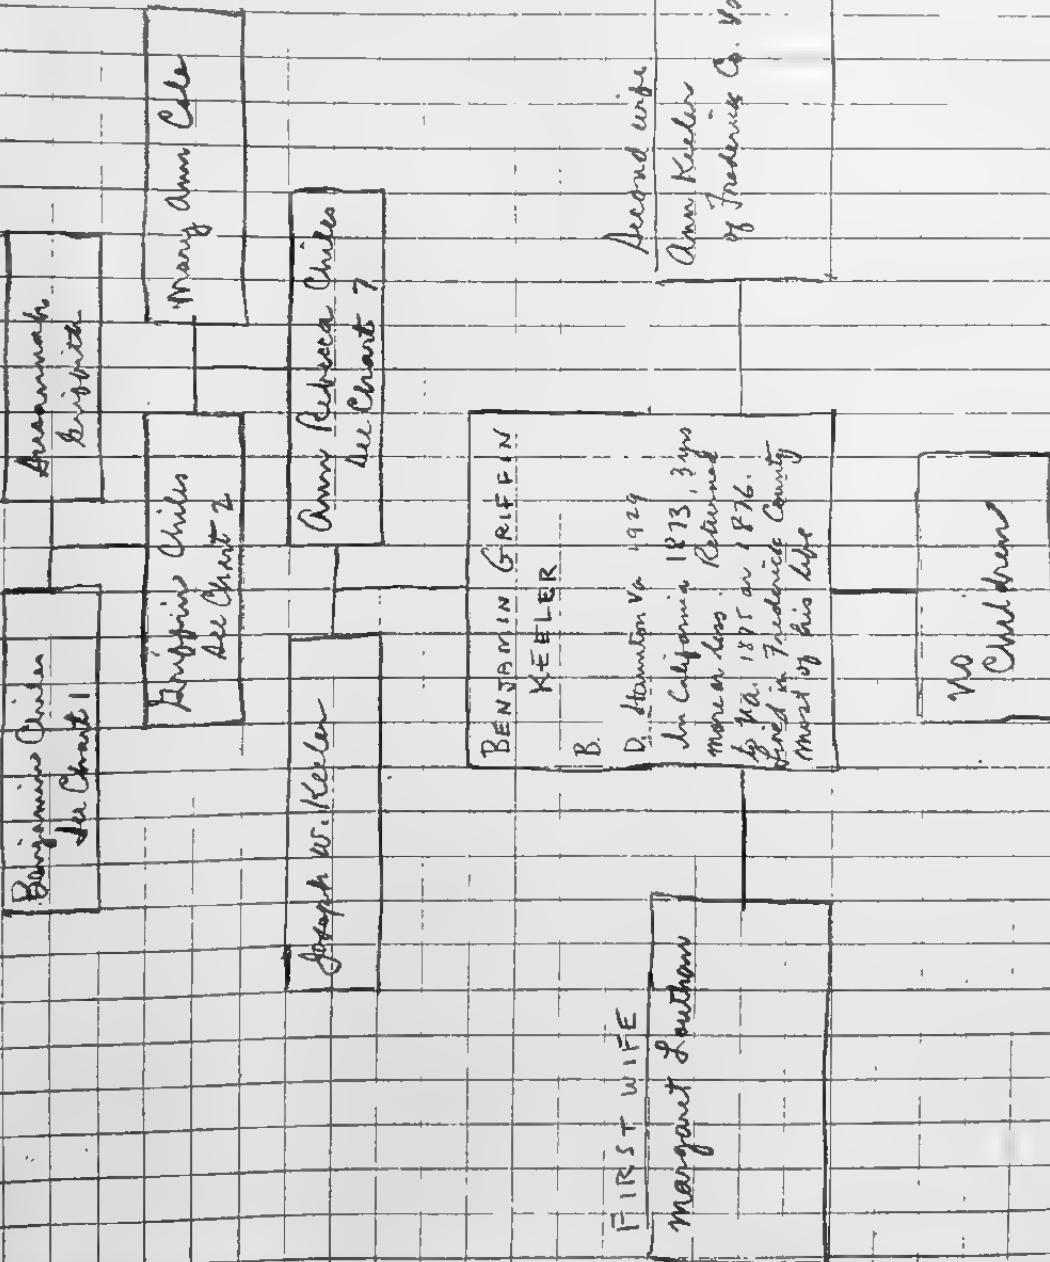 Benjamin Chiles
See Chart 1
Susannah
Griffith
Griffin Chiles
See Chart 2
Mary Ann Cole
Joseph W. Keeler
Ann Rebecca Chiles
See Chart 7
BENJAMIN GRIFFIN
KEELER
B.
D. Staunton Va 1929
In California 1873, 3 yrs
more or less. Returned
to Va. 1875 or 1876.
Lived in Frederick County
most of his life
FIRST WIFE
Margaret Louthan
Second wife
Ann Keeler
of Frederick Co. Va
No
Children